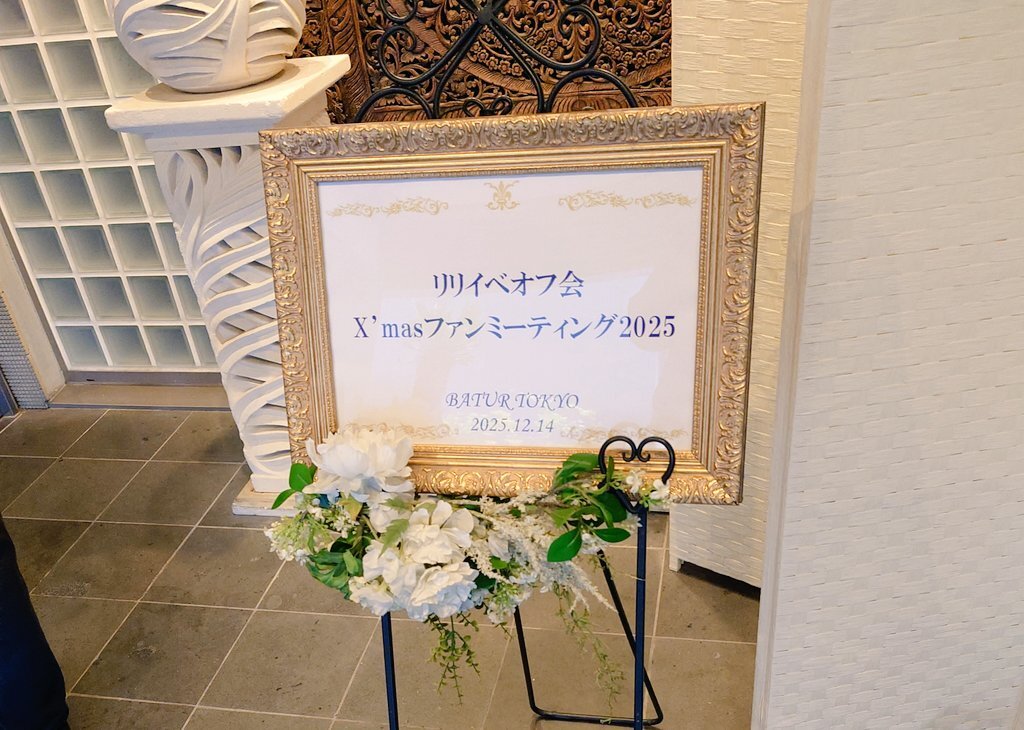 リリイベオフ会
X'masファンミーティング2025
BATUR TOKYO
2025.12.14